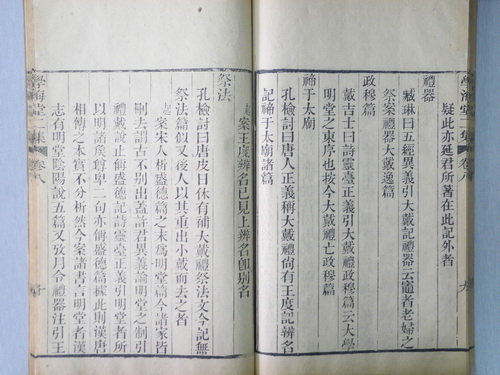 疑此亦延君所著在此記外者
禮器
臧琳曰五經異義引大戴記禮器云竈者老婦之
祭案禮器大戴逸篇
政穆篇
戴吉士曰詩靈臺正義引大戴禮政穆篇云大學
明堂之東序也按今大戴禮亡政穆篇
禘于太廟
孔檢討曰唐人正義稱大戴禮尙有王度記辨名
記禘于太廟諸篇
案王度辨名已見上辨名卽別名
祭法
孔檢討曰唐皮日休有補大戴禮祭法文今記無
祭法篇似又後人以其重出小戴而去之者
案宋人析盛德之末為明堂篇今諸家皆
刪去謂古不別出蓋許君異義論明堂之制引
禮戴說止偁盛德記詩靈臺正義引明堂者所
以明諸矦尊卑二句亦偁盛德篇據此則漢唐
相傳之本實不分析然今案諸書言明堂者漢
志有明堂陰陽說五篇又攷月令禮器注引王
學海堂二集
卷八